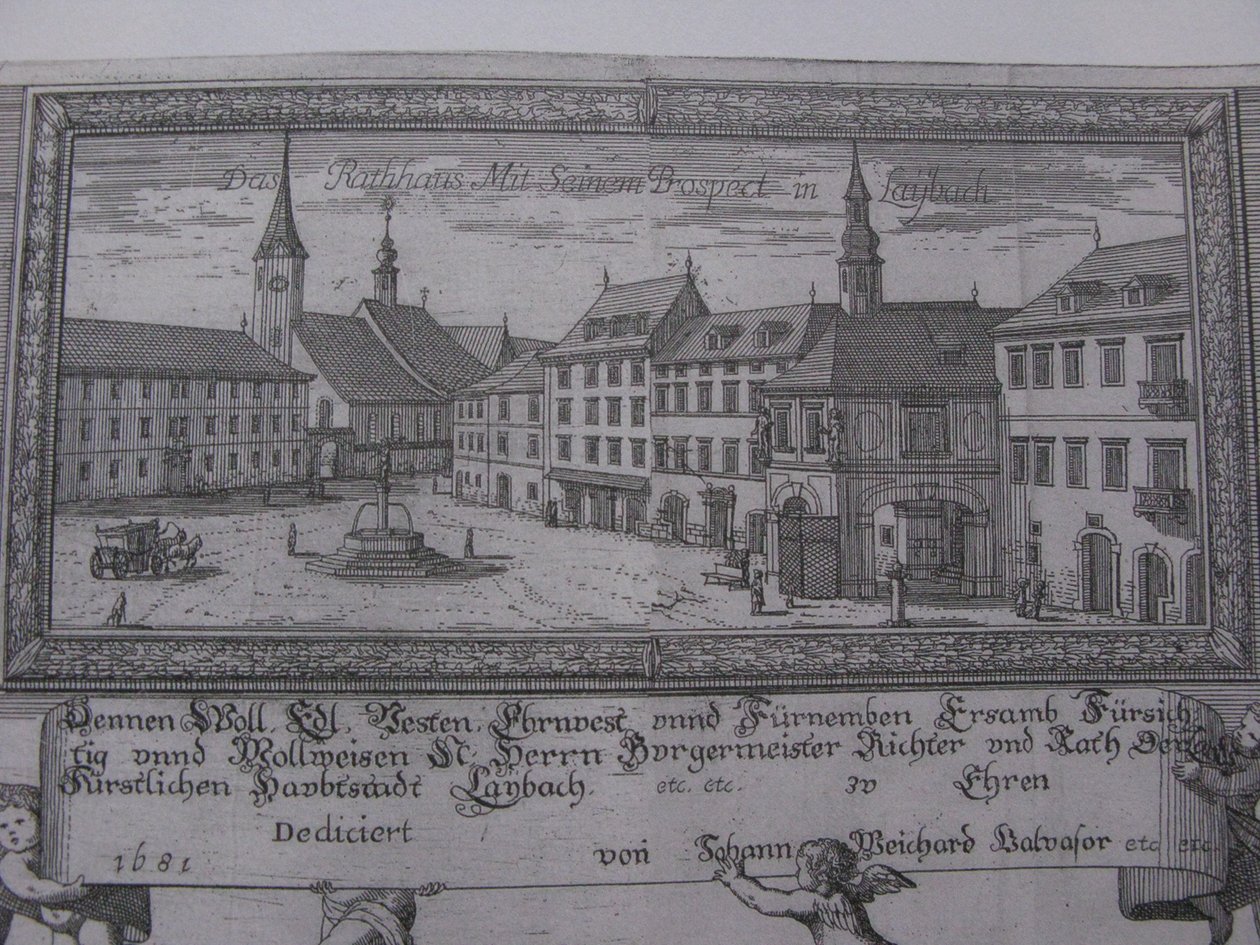 Das Rathhaus Mit Seinem Prospect in Laÿbach
Dennen Woll, Edl, Vesten, Ehrnvest, vnnd Fürnemben, Ersamb, Fürsich-
tig vnnd Wollweisen N: Herrn Bvrgermeister Richter vnd Rath Der
Fürstlichen Havbtstadt Laÿbach. etc. etc. zv Ehren
Dediciert
1681 von Johann Weichard Valvasor etc etc.